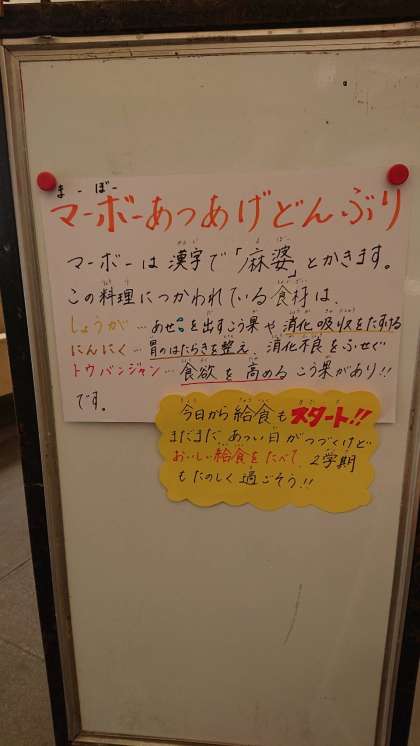 マーボーあつあげどんぶり
マーボーは漢字で「麻婆」とかきます。
この料理につかわれている食材は、
しょうが…あせを出すこう果や、消化吸収をたすける
にんにく…胃のはたらきを整え、消化不良をふせぐ
トウバンジャン…食欲を高めるこう果があり!!
です。
今日から給食もスタート!!
まだまだあつい日がつづくけど
おいしい給食をたべて、2学期
もたのしく過ごそう!!